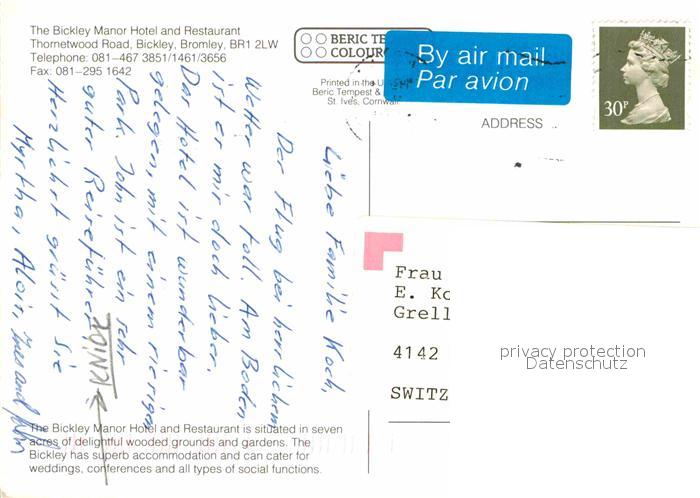 The Bickley Manor Hotel and Restaurant
Thornetwood Road, Bickley, Bromley, BR1 2LW
Telephone: 081–467 3851/1461/3656
Fax: 081–295 1642
BERIC TE
COLOUR
Printed in the U
Beric Tempest &
St. Ives, Cornwall
By air mail
Par avion
30P
ADDRESS
Liebe Familie Koch,
Der Flug bei herrlichem
Wetter war toll. Am Boden
ist er mir doch lieber.
Das Hotel ist wunderbar
gelegen, mit einem riesigen
Park. John ist ein sehr
guter Reiseführer
Herzlichst grüsst Sie
Myrtha, Alois, Ines and John
KNIOF
Frau
E. Ko
Grell
4142
SWITZ
privacy protection
Datenschutz
The Bickley Manor Hotel and Restaurant is situated in seven
acres of delightful wooded grounds and gardens. The
Bickley has superb accommodation and can cater for
weddings, conferences and all types of social functions.